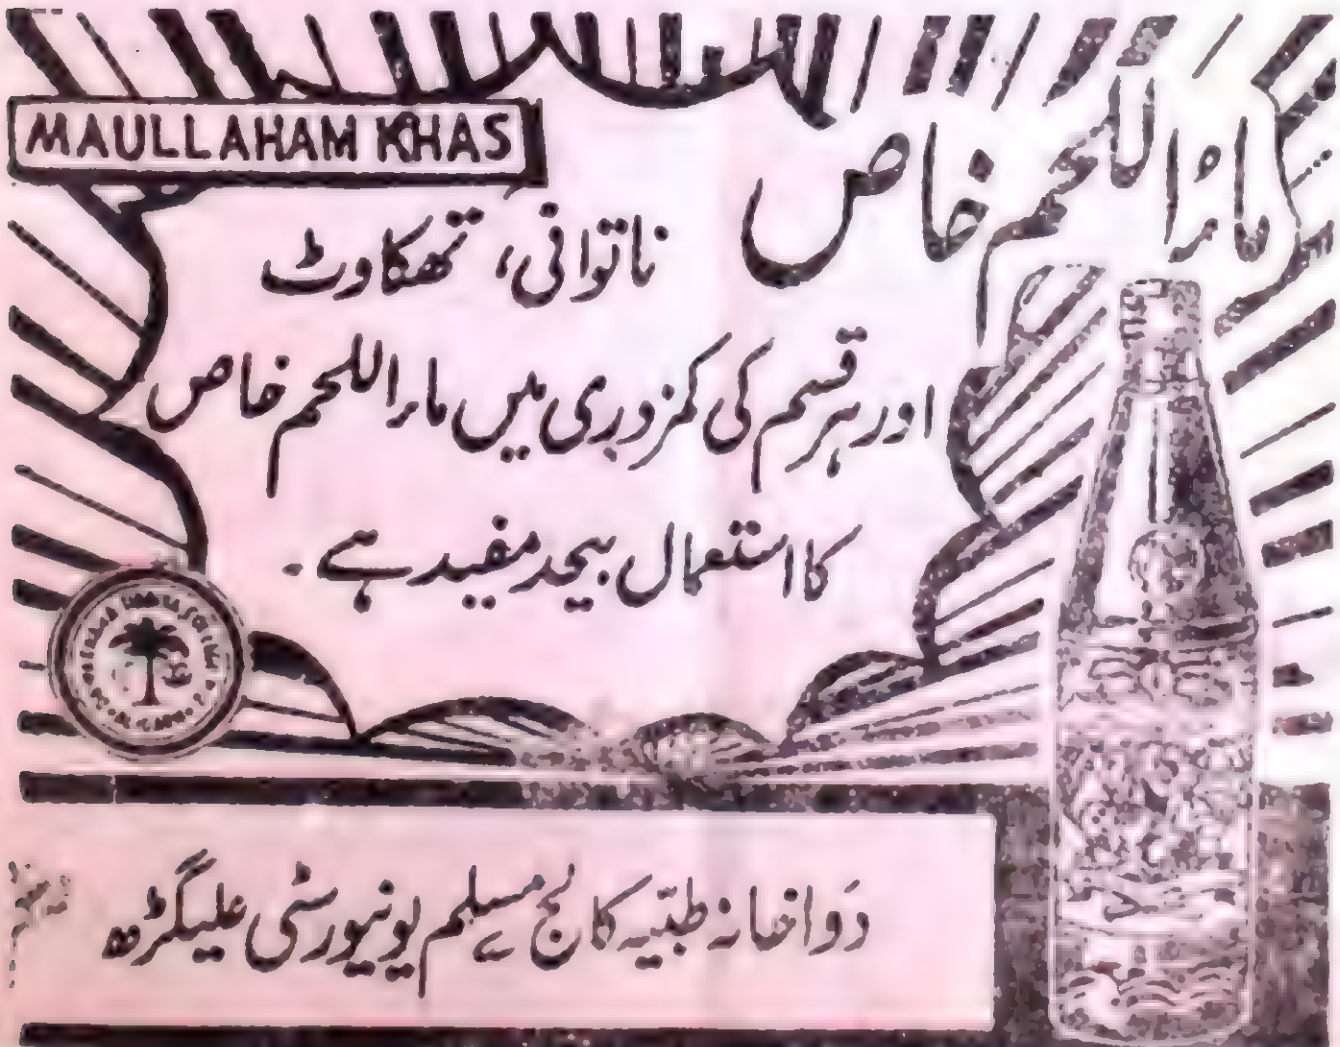 MAULLAHAM KHAS
ماءاللحم خاص
ناتوانی، تھکاوٹ
اور ہر قسم کی کمزوری میں ماءاللحم خاص
کا استعمال بیحد مفید ہے۔
دَواخانہ طبّیہ کالج مسلم یونیورسٹی علیگڑھ